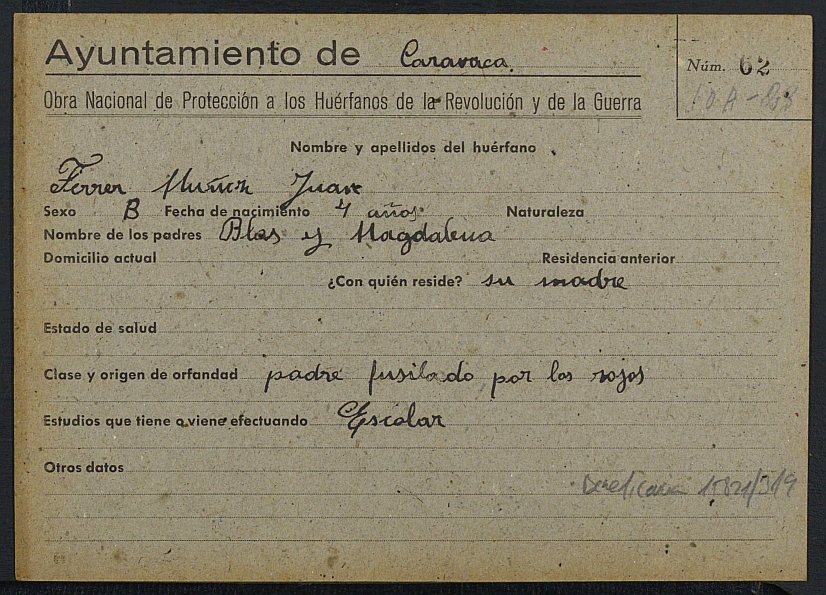 Ayuntamiento de Caravaca.
Núm. 62
Obra Nacional de Protección a los Huérfanos de la Revolución y de la Guerra
Nombre y apellidos del huérfano
Ferrer Muñoz Juan
Sexo B Fecha de nacimiento 4 años Naturaleza
Nombre de los padres Blas y Magdalena
Domicilio actual Residencia anterior
¿Con quién reside? su madre
Estado de salud
Clase y origen de orfandad padre fusilado por los rojos
Estudios que tiene o viene efectuando Escolar
Otros datos